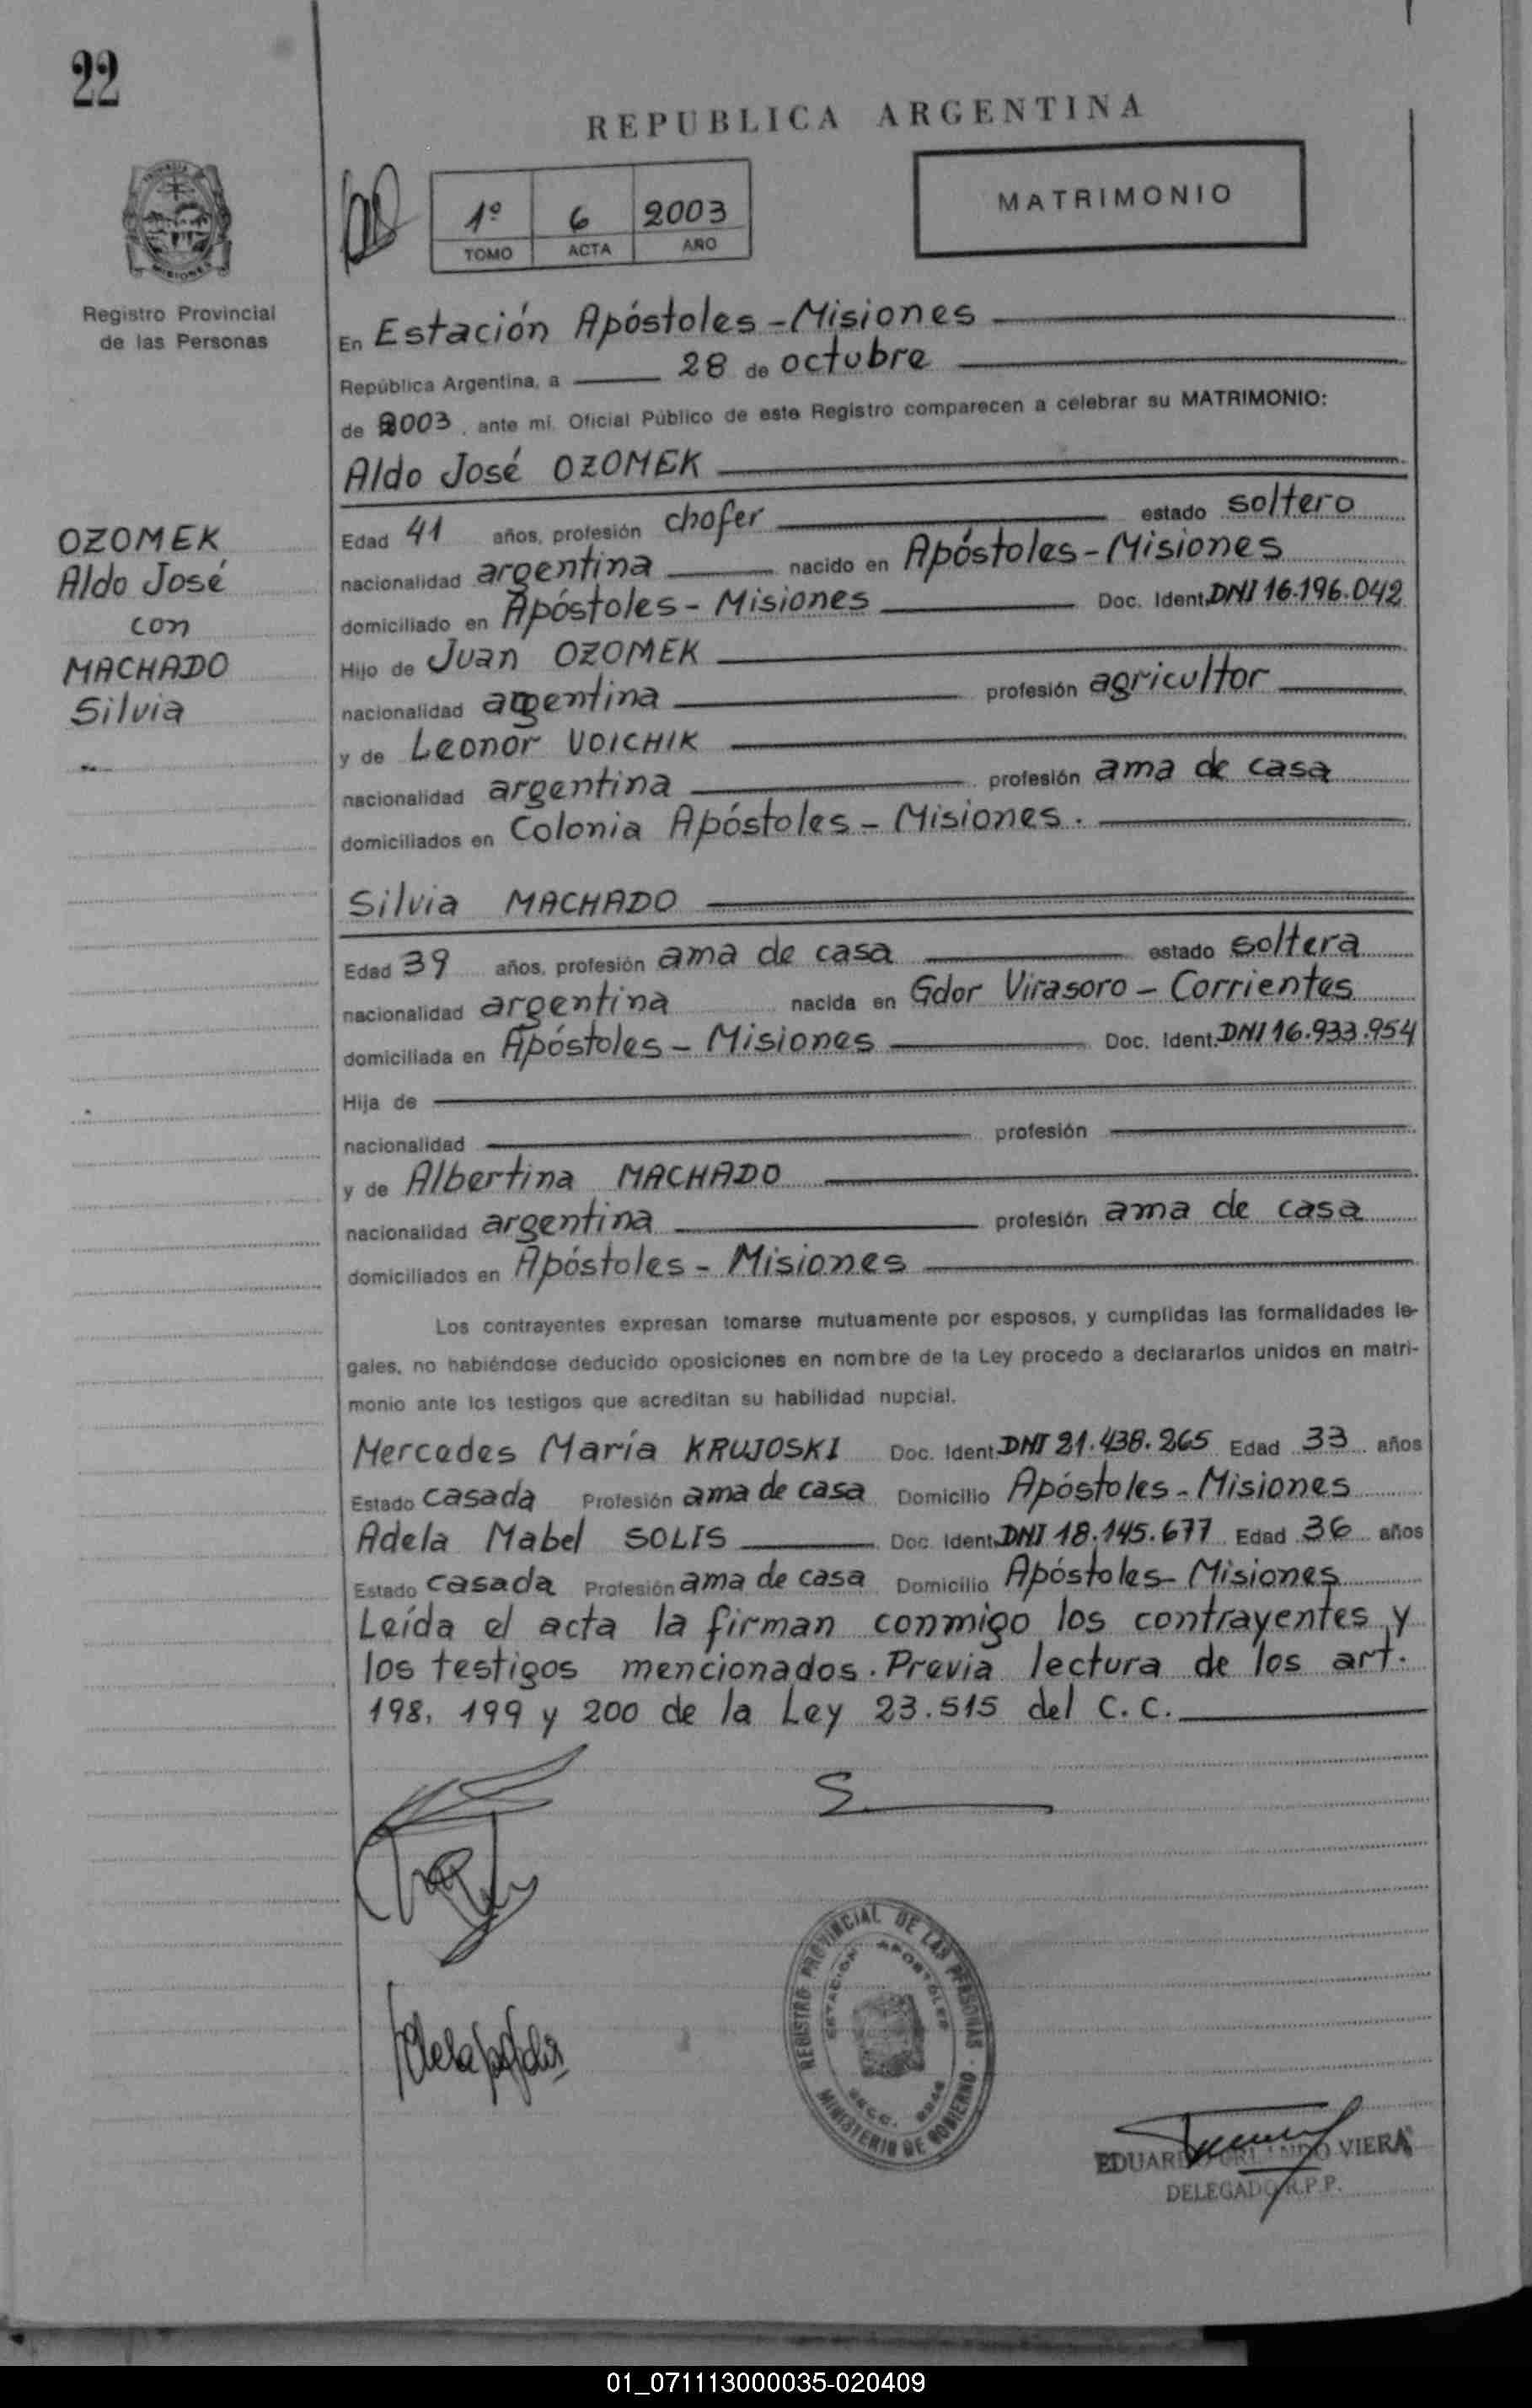 22
REPUBLICA ARGENTINA
1º 6 2003
TOMO ACTA AÑO
MATRIMONIO
MISIONES
Registro Provincial
de las Personas
OZOMEK
Aldo José
con
MACHADO
Silvia
En Estación Apóstoles - Misiones
República Argentina, a 28 de octubre
de 2003, ante mí, Oficial Público de este Registro comparecen a celebrar su MATRIMONIO:
Aldo José OZOMEK
Edad 41 años, profesión chofer estado soltero
nacionalidad argentina nacido en Apóstoles - Misiones
domiciliado en Apóstoles - Misiones Doc. Ident. DNI 16.196.042
Hijo de Juan OZOMEK
nacionalidad argentina profesión agricultor
y de Leonor VOICHIK
nacionalidad argentina profesión ama de casa
domiciliados en Colonia Apóstoles - Misiones.
Silvia MACHADO
Edad 39 años, profesión ama de casa estado soltera
nacionalidad argentina nacida en Gdor Virasoro - Corrientes
domiciliada en Apóstoles - Misiones Doc. Ident. DNI 16.933.954
Hija de
nacionalidad profesión
y de Albertina MACHADO
nacionalidad argentina profesión ama de casa
domiciliados en Apóstoles - Misiones
Los contrayentes expresan tomarse mutuamente por esposos, y cumplidas las formalidades le-
gales, no habiéndose deducido oposiciones en nombre de la Ley procedo a declararlos unidos en matri-
monio ante los testigos que acreditan su habilidad nupcial.
Mercedes María KRUJOSKI Doc. Ident. DNI 21.438.265 Edad 33 años
Estado casada Profesión ama de casa Domicilio Apóstoles - Misiones
Adela Mabel SOLIS Doc. Ident. DNI 18.145.677 Edad 36 años
Estado casada Profesión ama de casa Domicilio Apóstoles - Misiones
Leída el acta la firman conmigo los contrayentes y
los testigos mencionados. Previa lectura de los art.
198, 199 y 200 de la Ley 23.515 del C.C.
REGISTRO PROVINCIAL DE LAS PERSONAS
ESTACION APOSTOLES
MINISTERIO DE GOBIERNO
EDUARDO ORLANDO VIERA
DELEGADO R.P.P.
01_071113000035-020409